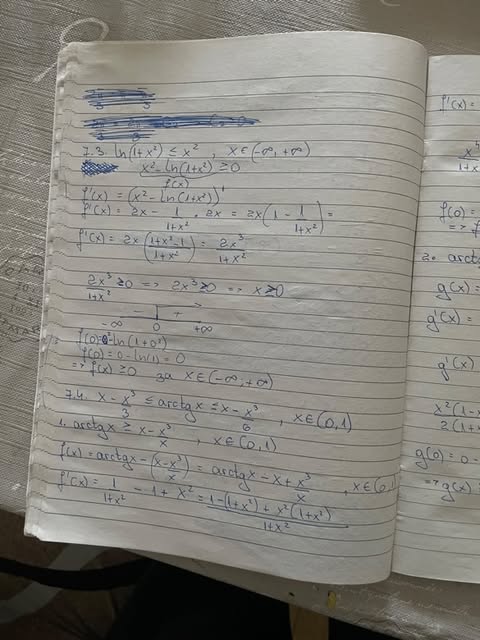 7.3 ln(1+x²) ≤ x² , x∈(-∞,+∞)
x² - ln(1+x²) ≥ 0
f(x)
f'(x) = (x² - ln(1+x²))'
f'(x) = 2x - 1/(1+x²) · 2x = 2x(1 - 1/(1+x²)) =
f'(x) = 2x((1+x²-1)/(1+x²)) = 2x³/(1+x²)
2x³/(1+x²) ≥ 0 => 2x³ ≥ 0 => x ≥ 0
- +
-∞ 0 +∞
f(0) = 0² - ln(1+0²)
f(0) = 0 - ln(1) = 0
=> f(x) ≥ 0 за x∈(-∞,+∞)
7.4. x - x³/3 ≤ arctgx ≤ x - x³/6 , x∈(0,1)
1. arctgx ≥ x - x³/x , x∈(0,1)
f(x) = arctgx - (x - x³/x) = arctgx - x + x³/x , x∈(0,1)
f'(x) = 1/(1+x²) - 1 + x² = (1-(1+x²) + x²(1+x²))/(1+x²)
f'(x) =
f(0) =
=> f
2. arctg
g(x) =
g'(x) =
g'(x)
x²(1-x
2(1+x
g(0) = 0 -
=> g(x)